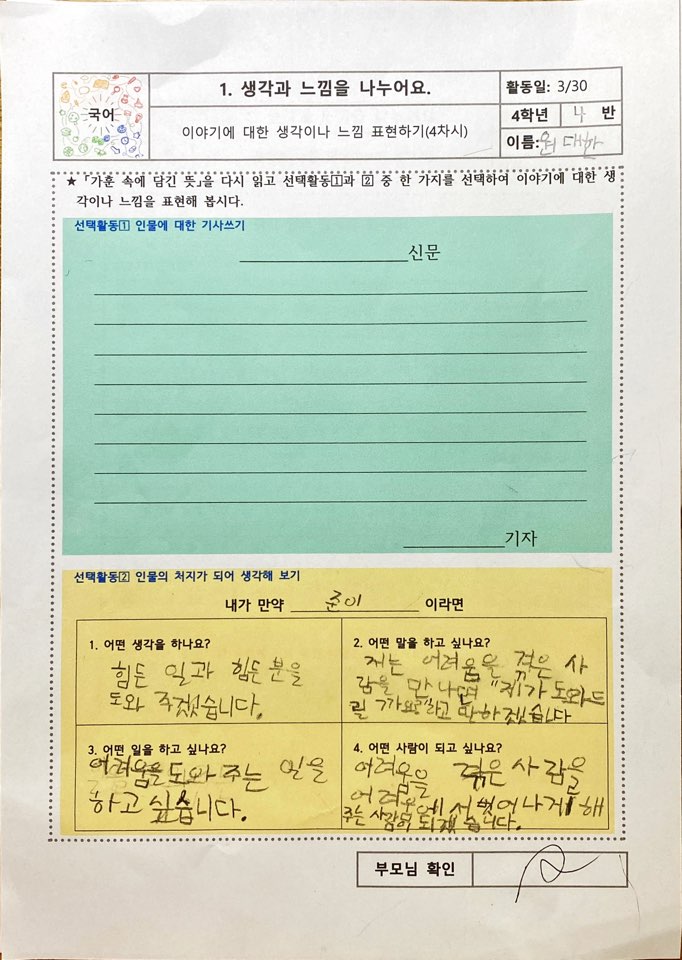 국어
1. 생각과 느낌을 나누어요.
이야기에 대한 생각이나 느낌 표현하기(4차시)
활동일: 3/30
4학년 4 반
이름: 원대한
★「가훈 속에 담긴 뜻」을 다시 읽고 선택활동1과 2 중 한 가지를 선택하여 이야기에 대한 생
각이나 느낌을 표현해 봅시다.
선택활동1 인물에 대한 기사쓰기
신문
기자
선택활동2 인물의 처지가 되어 생각해 보기
내가 만약 준이 이라면
1. 어떤 생각을 하나요?
힘든 일과 힘든 분을
도와 주겠습니다.
2. 어떤 말을 하고 싶나요?
저는 어려움을 겪은 사
람을 만나면 "제가 도와드
릴 가요"라고 말하겠습니다
3. 어떤 일을 하고 싶나요?
어려움을 도와 주는 일을
하고 싶습니다.
4. 어떤 사람이 되고 싶나요?
어려움을 겪은 사람을
어려움에서 벗어나게 해
주는 사람이 되겠습니다.
부모님 확인